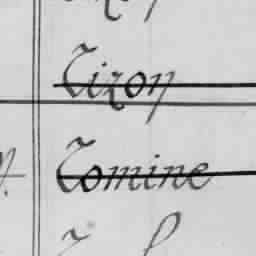 Tizon
Tomine